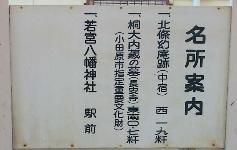 名所案内
一、北條幻庵跡(中宿) 西一九粁
一、桐大内蔵の墓
(小田原市指定重要文化財)
一、若宮八幡神社 駅前